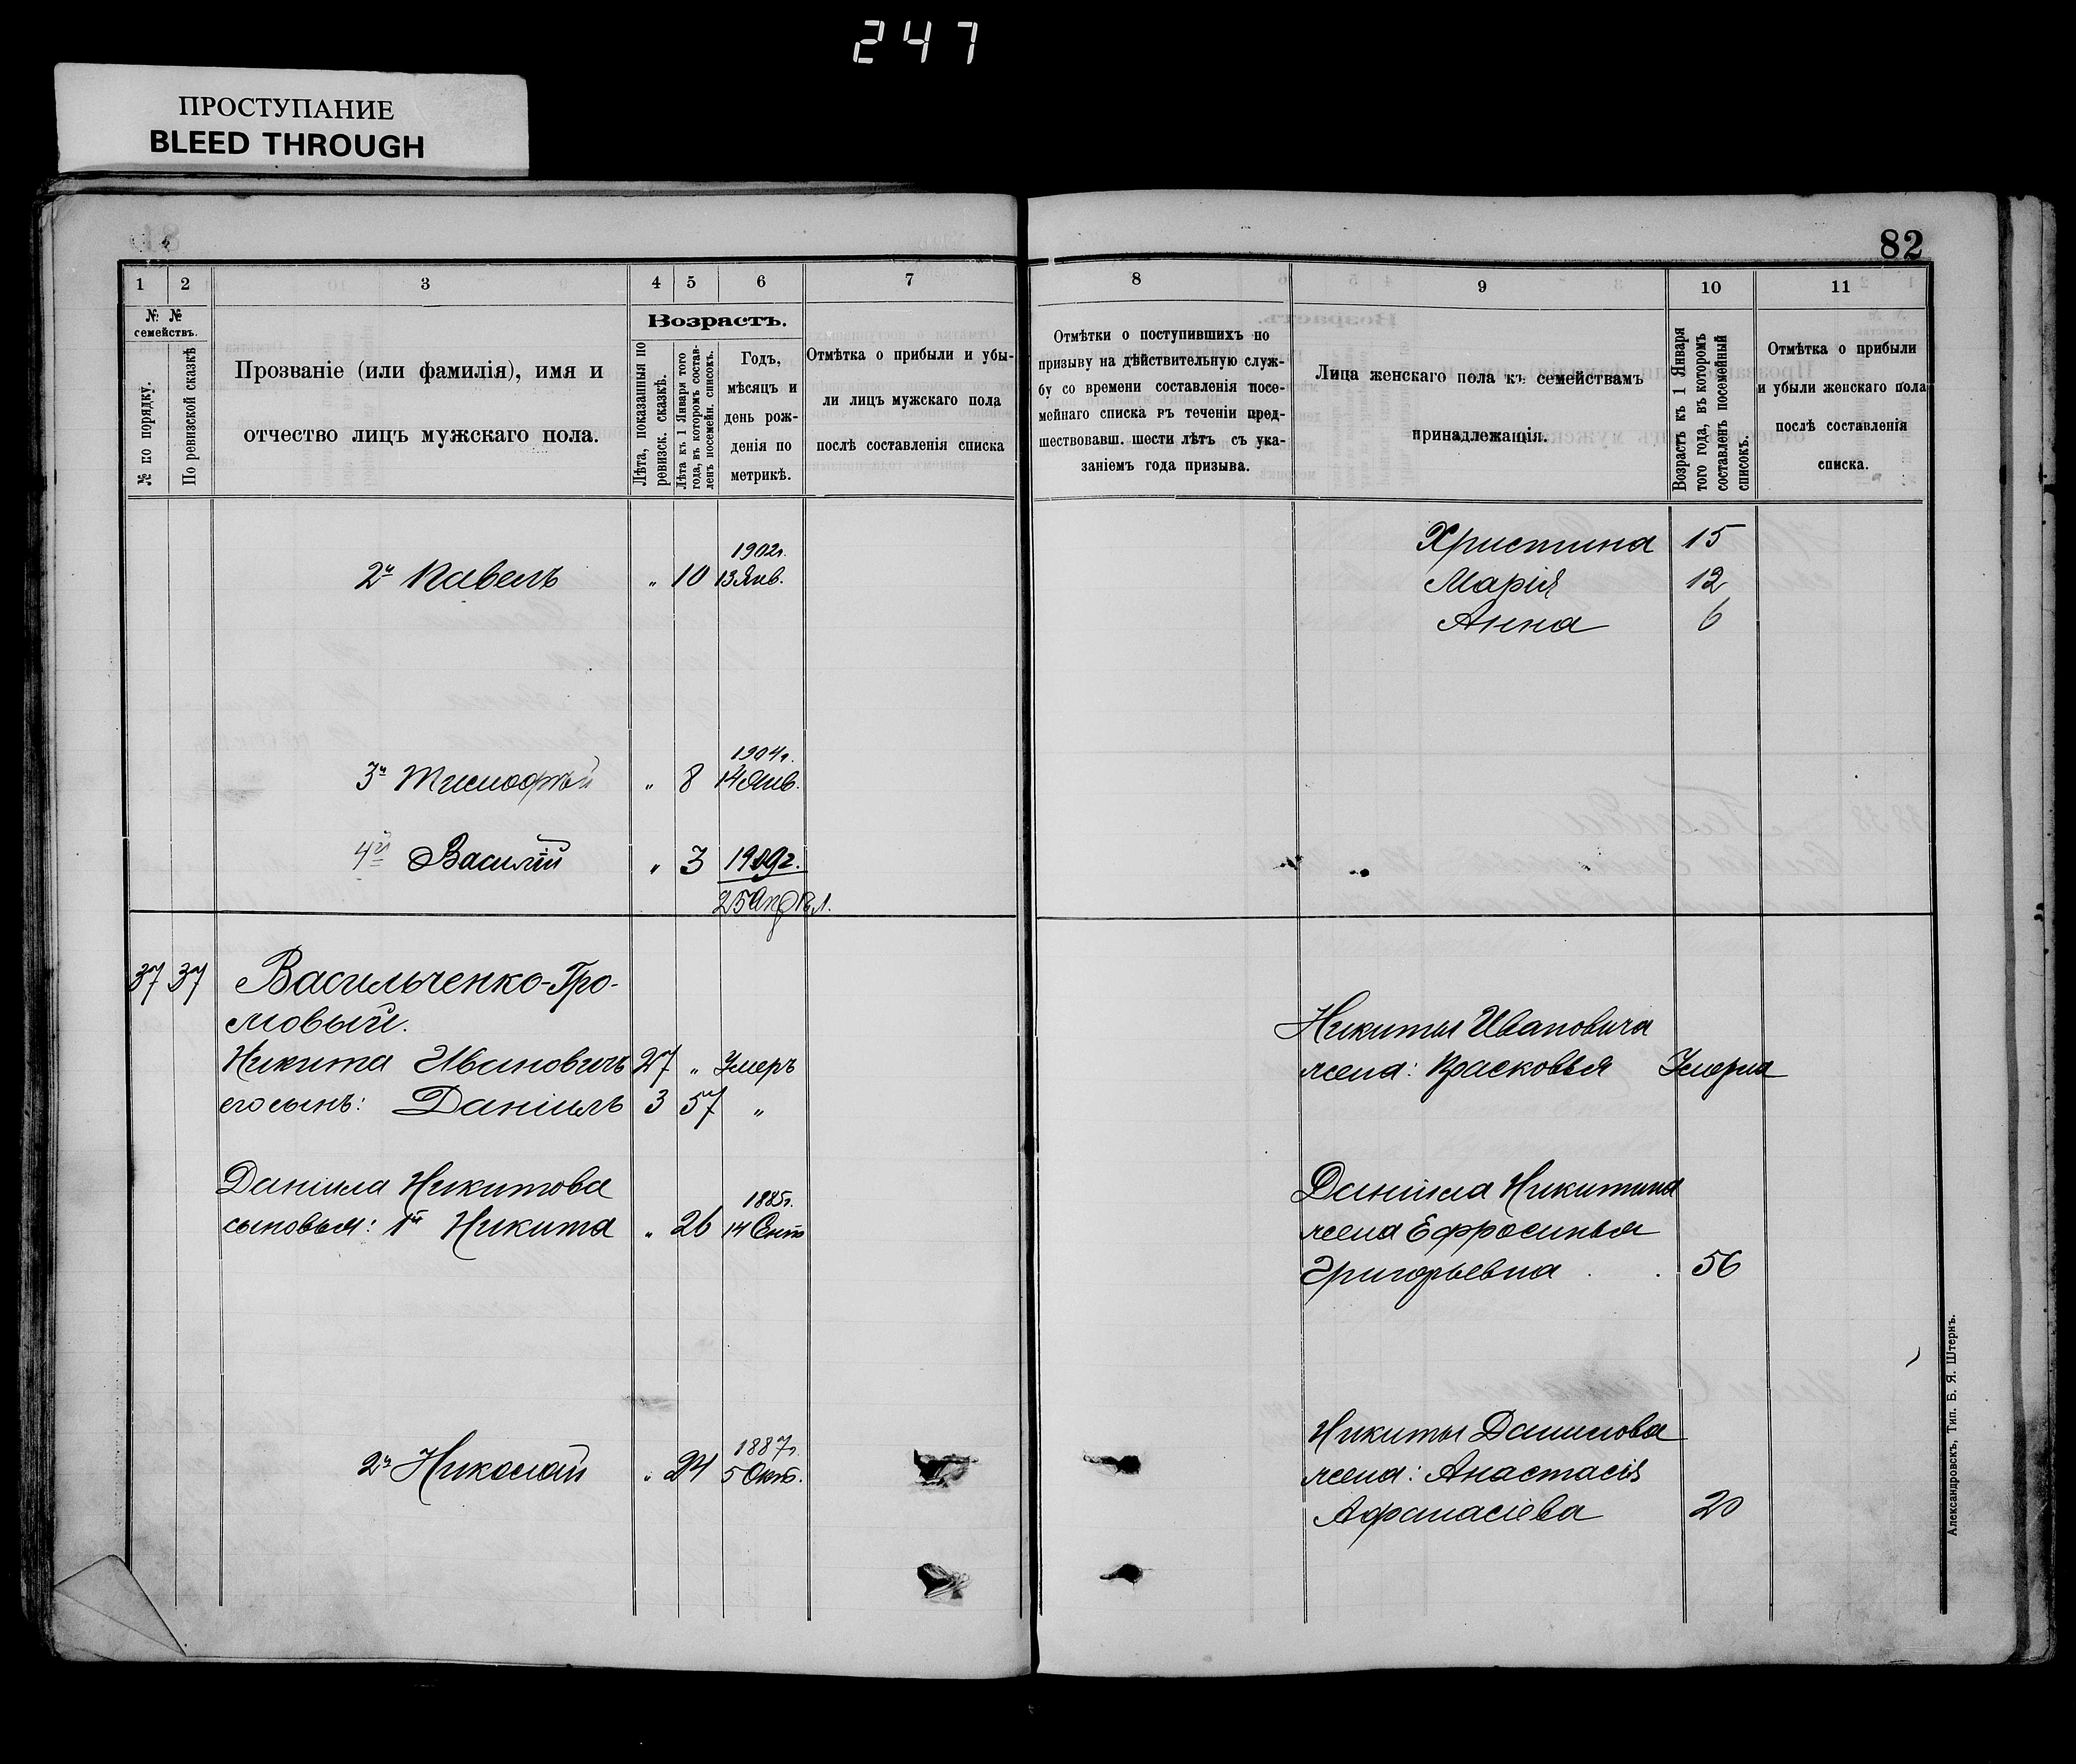 247
ПРОСТУПАНИЕ
BLEED THROUGH
82
1 2 3 4 5 6 7
№ № семействъ.
№ по порядку.
По ревизской сказкѣ
Прозваніе (или фамилія), имя и
отчество лицъ мужскаго пола.
Возрастъ.
Лѣта, показанныя по
ревизск. сказкѣ.
Лѣта къ 1 Января того
года, въ которомъ состав-
ленъ посемейн. списокъ.
Годъ,
мѣсяцъ и
день рож-
денія по
метрикѣ.
Отмѣтка о прибыли и убы-
ли лицъ мужскаго пола
послѣ составленія списка
2й Павелъ " 10 1902г.
13 Янв.
3й Тимофей " 8 1904г.
14 Янв.
4й Василій " 3 1909г.
25 Апрѣл.
37 37 Васильченко-Гро-
мовый.
Никита Ивановичъ 27 " Умеръ
его сынъ: Даніилъ 3 57 "
Даніила Никитова
сыновья: 1й Никита " 26 1885г.
14 Сент
2й Николай " 24 1887г.
5 Окт.
8 9 10 11
Отмѣтки о поступившихъ по
призыву на дѣйствительную служ-
бу со времени составленія посе-
мейнаго списка въ теченіи пред-
шествовавш. шести лѣтъ съ ука-
заніемъ года призыва.
Лица женскаго пола къ семействамъ
принадлежащія.
Возрастъ къ 1 Января
того года, въ которомъ
составленъ посемейный
списокъ.
Отмѣтка о прибыли
и убыли женскаго пола
послѣ составленія
списка.
Христина 15
Марія 12
Анна 6
Никиты Ивановича
жена: Прасковья Умерла
Даніила Никитина
жена Ефросинья
Григорьевна . . 56
Никиты Данилова
жена: Анастасія
Афанасіева 20
Александровскъ, Тип. Б. Я. Штернъ.